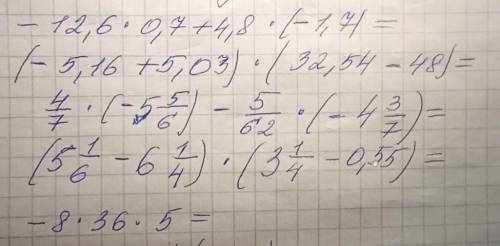 - 12,6 · 0,7 + 4,8 · (- 1,7) =
(- 5,16 + 5,03) · (32,54 - 48) =
4/7 · (-5 5/6) - 5/62 · (- 4 3/7) =
(5 1/6 - 6 1/4) · (3 1/4 - 0,55) =
- 8 · 36 · 5 =